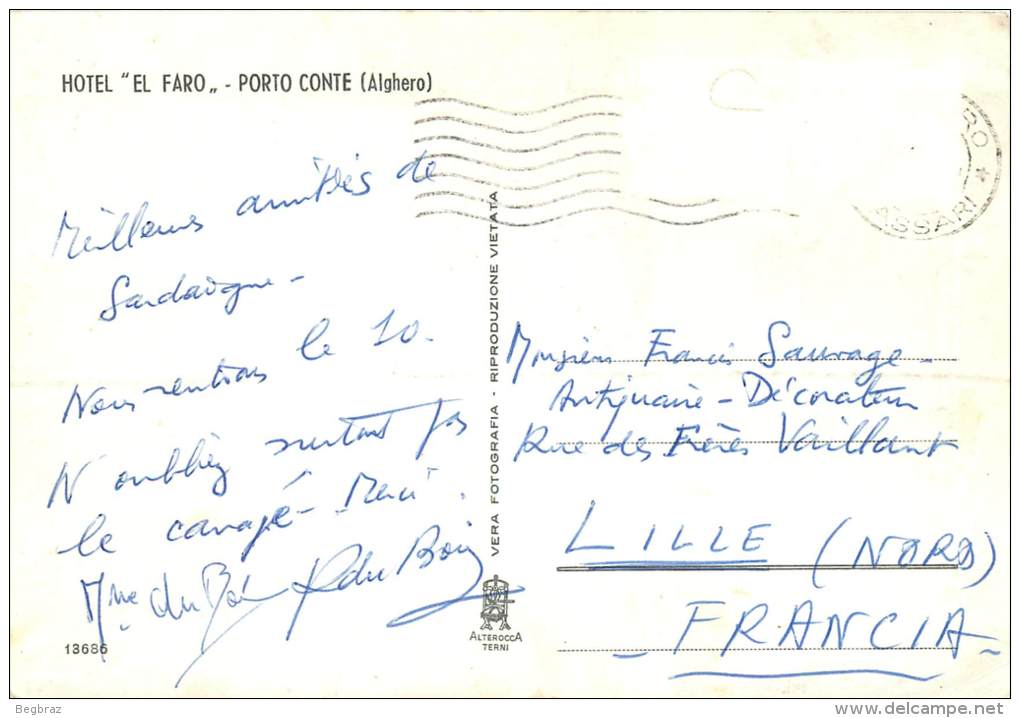 HOTEL "EL FARO„ - PORTO CONTE (Alghero)
Meilleures amitiés de
Sardaigne -
Nous rentrons le 10.
N'oubliez surtout pas
le canapé - Merci.
Mme du Bois
P du Bois
13686
VERA FOTOGRAFIA - RIPRODUZIONE VIETATA
ALTEROCCA
TERNI
SSARI *
Monsieur Francis Sauvage -
Antiquaire - Décorateur
Rue des Frères Vaillant
LILLE (NORD)
- FRANCIA -
Begbraz
delcampe.net